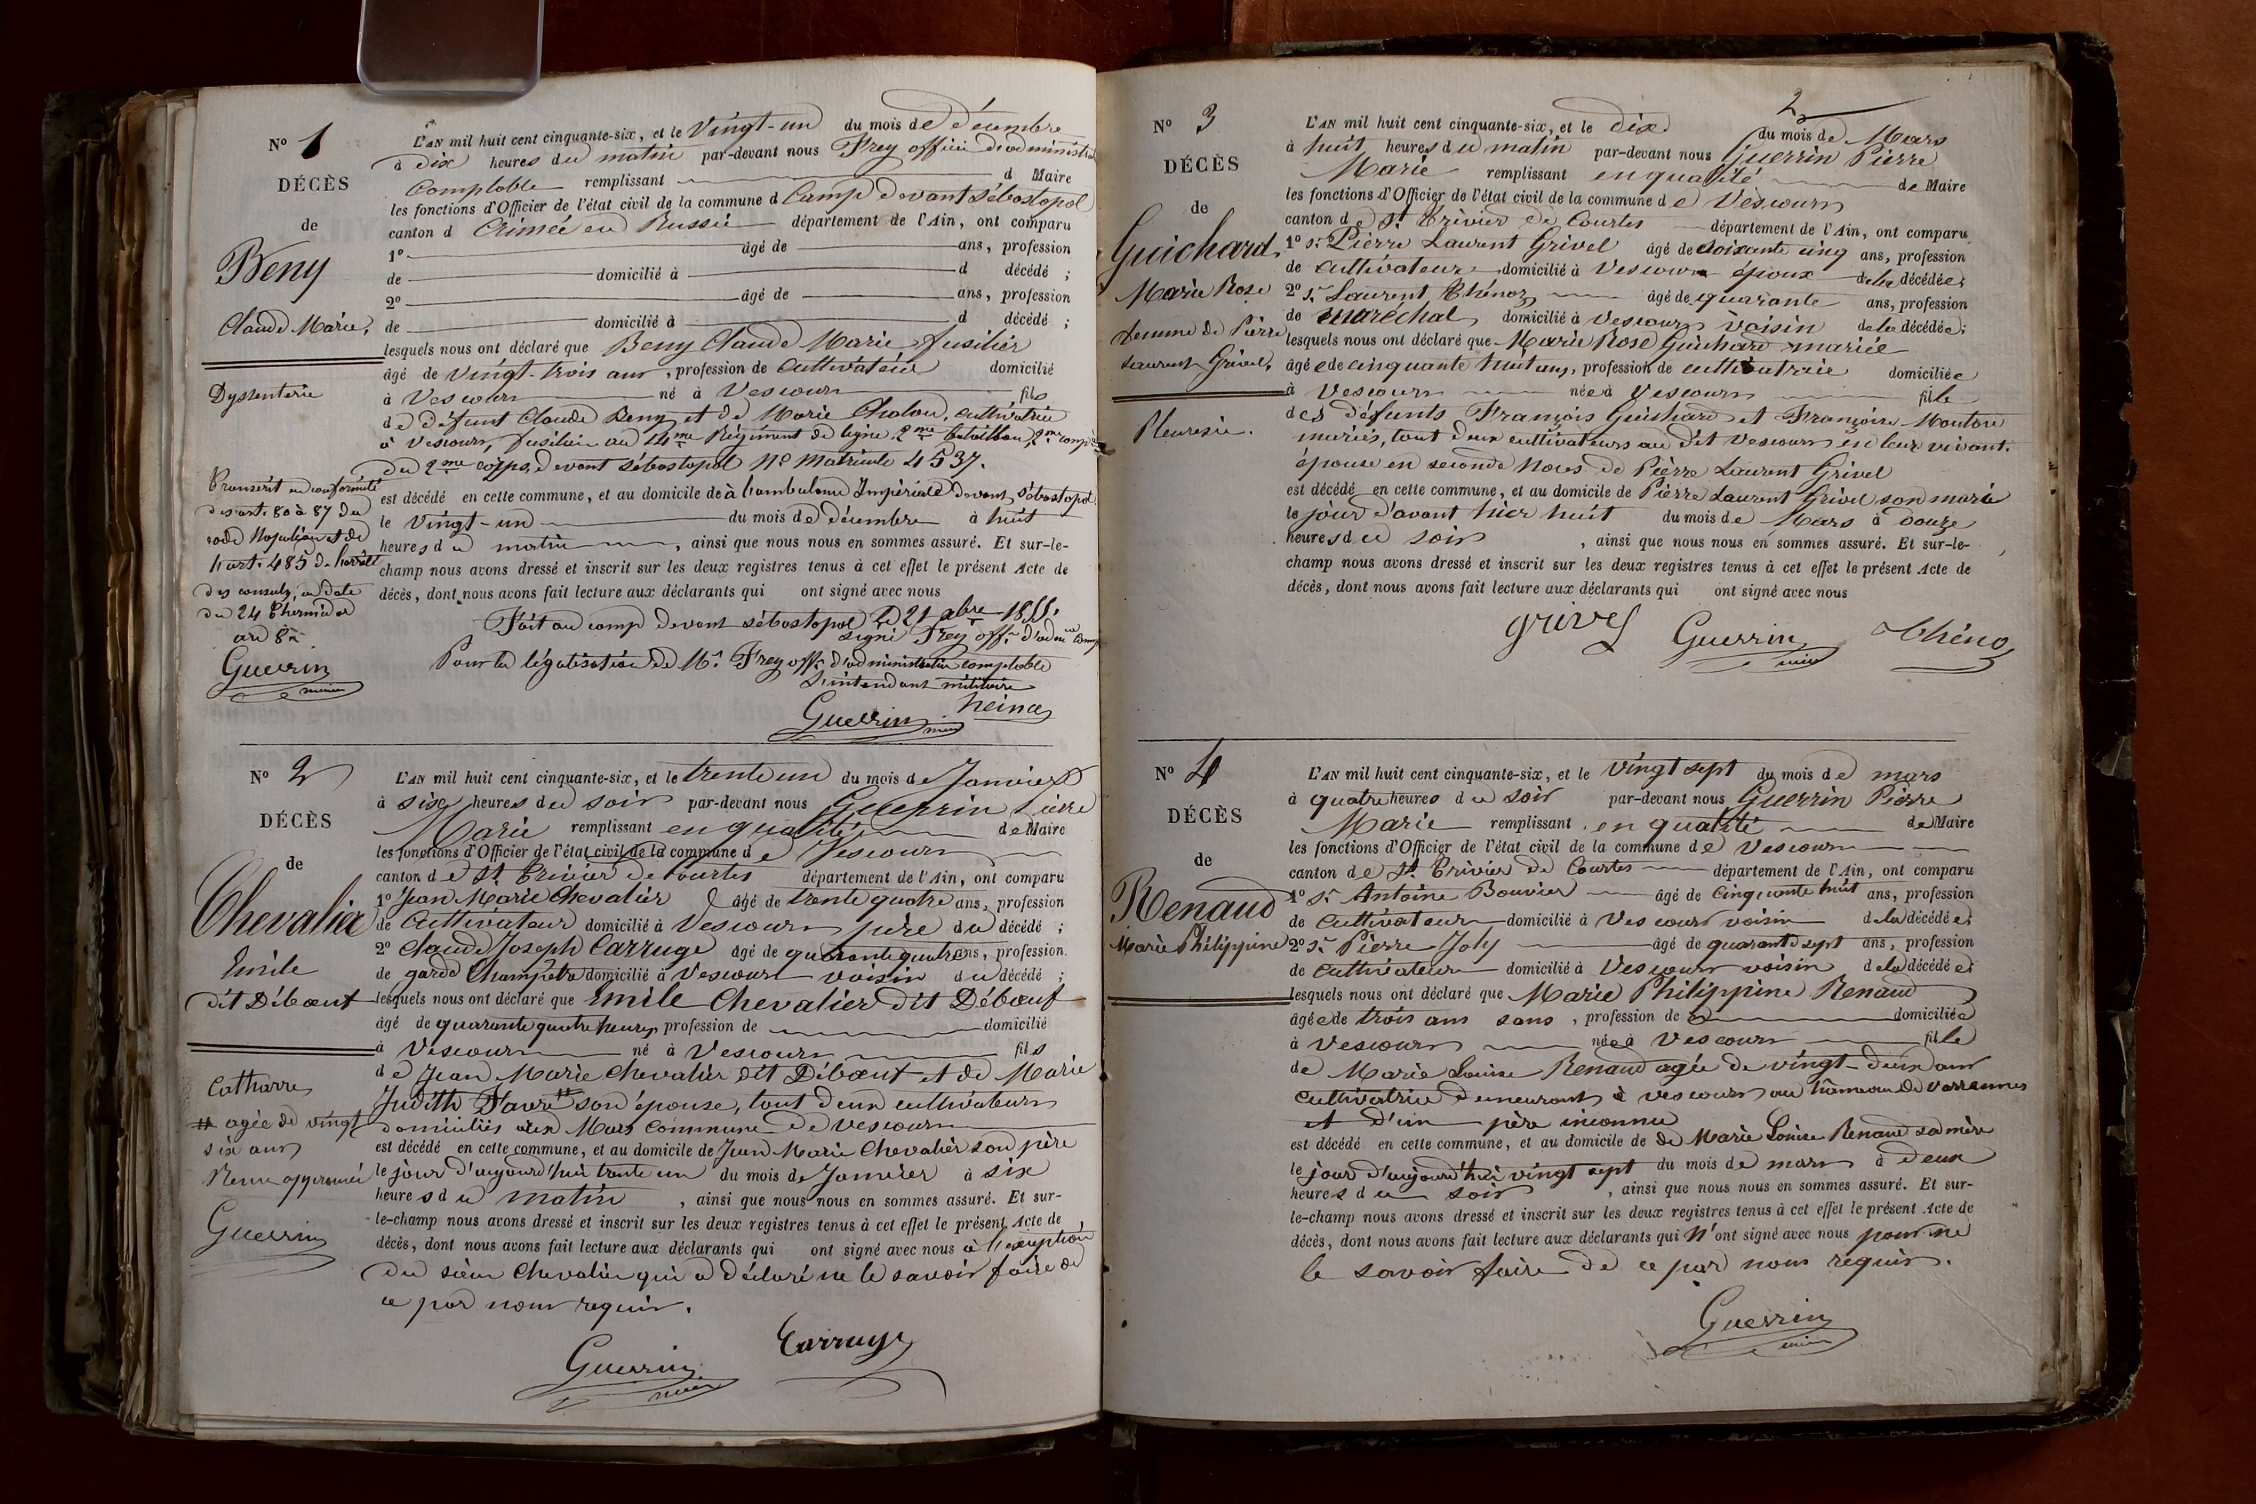 Nº 1
DÉCÈS
de
Beny
Claude Marie.
Dyssenterie
Transcrit en conformité
des art. 80 à 87 du
code Napoléon et de
l'art. 485 de l'arrêté
des consuls, en date
du 24 Thermidor
an 8
Guerrin
maire
L'AN mil huit cent cinquante-six, et le Vingt-un du mois de décembre
à dix heures du matin par-devant nous Frey officier d'administration
Comptable remplissant d Maire
les fonctions d'Officier de l'état civil de la commune d Camp devant Sébastopol
canton d Crimée en Russie département de l'Ain, ont comparu
1º âgé de ans, profession
de domicilié à d décédé ;
2º âgé de ans, profession
de domicilié à d décédé ;
lesquels nous ont déclaré que Beny Claude Marie fusilier
âgé de vingt-trois ans, profession de Cultivateur domicilié
à Vescours né à Vescours fils
de défunt Claude Beny et de Marie Cholon, cultivatrice
à Vescours, fusilier au 14me Régiment de ligne 2me bataillon 2me comp
du 2me corps devant Sébastopol Nº Matricule 4537.
est décédé en cette commune, et au domicile de à l'ambulance Impériale devant Sébastopol
le vingt-un du mois de décembre à huit
heures du matin, ainsi que nous nous en sommes assuré. Et sur-le-
champ nous avons dressé et inscrit sur les deux registres tenus à cet effet le présent Acte de
décès, dont nous avons fait lecture aux déclarants qui ont signé avec nous
Fait au camp devant Sébastopol le 21 Xbre 1855.
signé Frey offr d'adon comp
Pour la légalisation de Mr Frey offr d'administration comptable
L'intendant militaire
Guerrin maire
Nº 2
DÉCÈS
de
Chevalier
Emile
dit Débœuf
Catharre
# agée de vingt
six ans
Renvoi approuvé
Guerrin
L'AN mil huit cent cinquante-six, et le trente un du mois de Janvier
à six heures du soir par-devant nous Guerrin Pierre
Marie remplissant en qualité de Maire
les fonctions d'Officier de l'état civil de la commune de Vescours
canton de St Trivier de Courtes département de l'Ain, ont comparu
1º Jean Marie Chevalier âgé de trente quatre ans, profession
de Cultivateur domicilié à Vescours père du décédé ;
2º Claude Joseph Carruge âgé de quarante quatre ans, profession
de garde Champêtre domicilié à Vescours voisin du décédé ;
lesquels nous ont déclaré que Emile Chevalier dit Débœuf
âgé de quarante quatre heures, profession de domicilié
à Vescours né à Vescours fils
de Jean Marie Chevalier dit Débœuf et de Marie
Judith Favre # son épouse, tout deux cultivateurs
domiciliés aux Murs commune de Vescours
est décédé en cette commune, et au domicile de Jean Marie Chevalier son père
le jour d'aujourd'hui trente un du mois de Janvier à six
heures du matin, ainsi que nous nous en sommes assuré. Et sur-
le-champ nous avons dressé et inscrit sur les deux registres tenus à cet effet le présent Acte de
décès, dont nous avons fait lecture aux déclarants qui ont signé avec nous à l'exception
du sieur Chevalier qui a déclaré ne le savoir faire de
ce par nous requis.
Guerrin maire Carruge
2
Nº 3
DÉCÈS
de
Guichard
Marie Rose
femme de Pierre
Laurent Grivel,
Pleuresie.
L'AN mil huit cent cinquante-six, et le dix du mois de Mars
à huit heures du matin par-devant nous Guerrin Pierre
Marie remplissant en qualité de Maire
les fonctions d'Officier de l'état civil de la commune de Vescours
canton de St Trivier de Courtes département de l'Ain, ont comparu
1º sr Pierre Laurent Grivel âgé de soixante cinq ans, profession
de cultivateur domicilié à Vescours époux de la décédée ;
2º sr Laurent Thénoz âgé de quarante ans, profession
de maréchal domicilié à Vescours voisin de la décédée ;
lesquels nous ont déclaré que Marie Rose Guichard mariée
âgée de cinquante huit ans, profession de cultivatrice domiciliée
à Vescours née à Vescours fille
des défunts François Guichard et Françoise Montore
mariés, tout deux cultivateurs au dit Vescours en leur vivant.
épouse en seconde Noces de Pierre Laurent Grivel
est décédé en cette commune, et au domicile de Pierre Laurent Grivel son marie
le jour d'avant hier huit du mois de Mars à douze
heures du soir, ainsi que nous nous en sommes assuré. Et sur-le-
champ nous avons dressé et inscrit sur les deux registres tenus à cet effet le présent Acte de
décès, dont nous avons fait lecture aux déclarants qui ont signé avec nous
Grivel Guerrin maire Thénoz
Nº 4
DÉCÈS
de
Renaud
Marie Philippine
L'AN mil huit cent cinquante-six, et le vingt sept du mois de mars
à quatre heures du soir par-devant nous Guerrin Pierre
Marie remplissant en qualité de Maire
les fonctions d'Officier de l'état civil de la commune de Vescours
canton de St Trivier de Courtes département de l'Ain, ont comparu
1º sr Antoine Bouvier âgé de Cinquante huit ans, profession
de Cultivateur domicilié à Vescours voisin de la décédée ;
2º sr Pierre Joly âgé de quarante sept ans, profession
de Cultivateur domicilié à Vescours voisin de la décédée
lesquels nous ont déclaré que Marie Philippine Renaud
âgée de trois ans sans, profession de domiciliée
à Vescours née à Vescours fille
de Marie Louise Renaud agée de vingt-deux ans
cultivatrice demeurant à Vescours au hameau de Varennes
et d'un père inconnu
est décédé en cette commune, et au domicile de de Marie Louise Renaud sa mère
le jour d'aujourd'hui vingt sept du mois de mars à deux
heures du soir, ainsi que nous nous en sommes assuré. Et sur-
le-champ nous avons dressé et inscrit sur les deux registres tenus à cet effet le présent Acte de
décès, dont nous avons fait lecture aux déclarants qui n'ont signé avec nous pour ne
le savoir faire de ce par nous requis.
Guerrin
maire